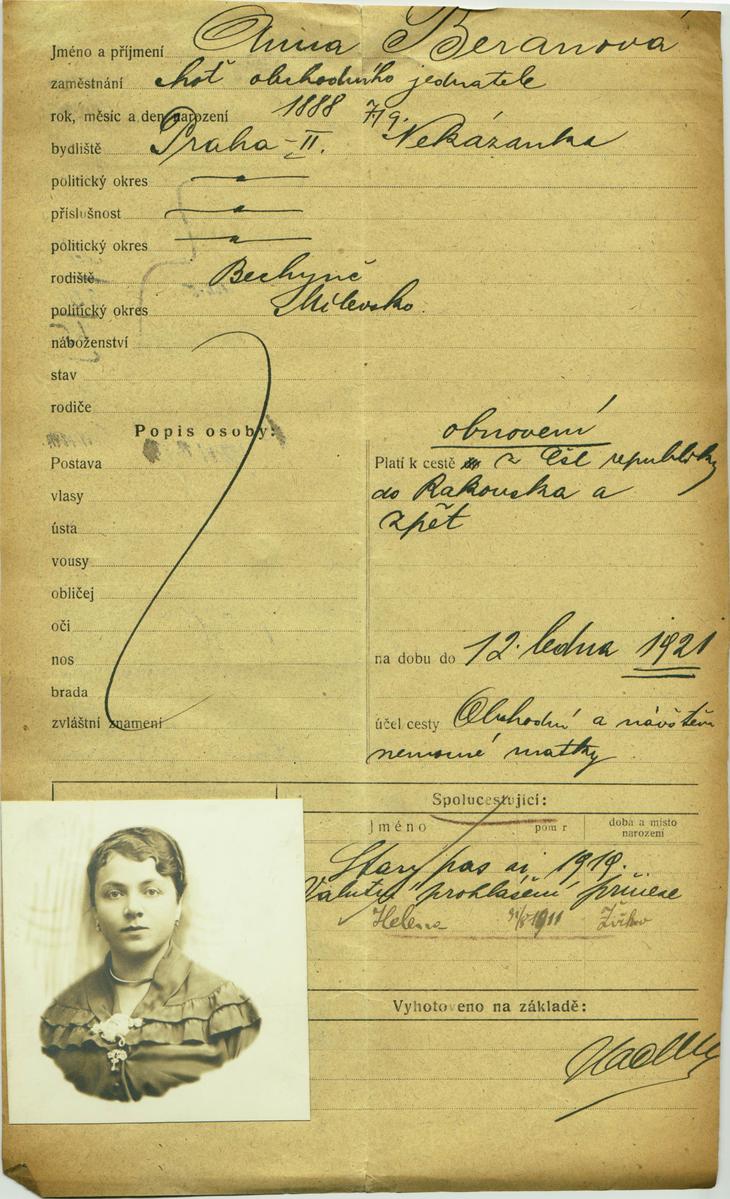 Jméno a příjmení Anna Beranová
zaměstnání choť obchodního jednatele
rok, měsíc a den narození 1888 7/9.
bydliště Praha-II. Nekázanka
politický okres
příslušnost
politický okres
rodiště Bechyně
politický okres Milevsko.
náboženství
stav
rodiče
Popis osoby:
Postava
vlasy
ústa
vousy
obličej
oči
nos
brada
zvláštní znamení
obnovení
Platí k cestě z Čsl republiky
do Rakouska a
zpět
na dobu do 12. ledna 1921
účel cesty Obchodní a návštěva
nemocné matky
Spolucestující:
Jméno
poměr
doba a místo
narození
Starý pas 1919.
prohlášení přinese
Helena 1911
Vyhotoveno na základě: